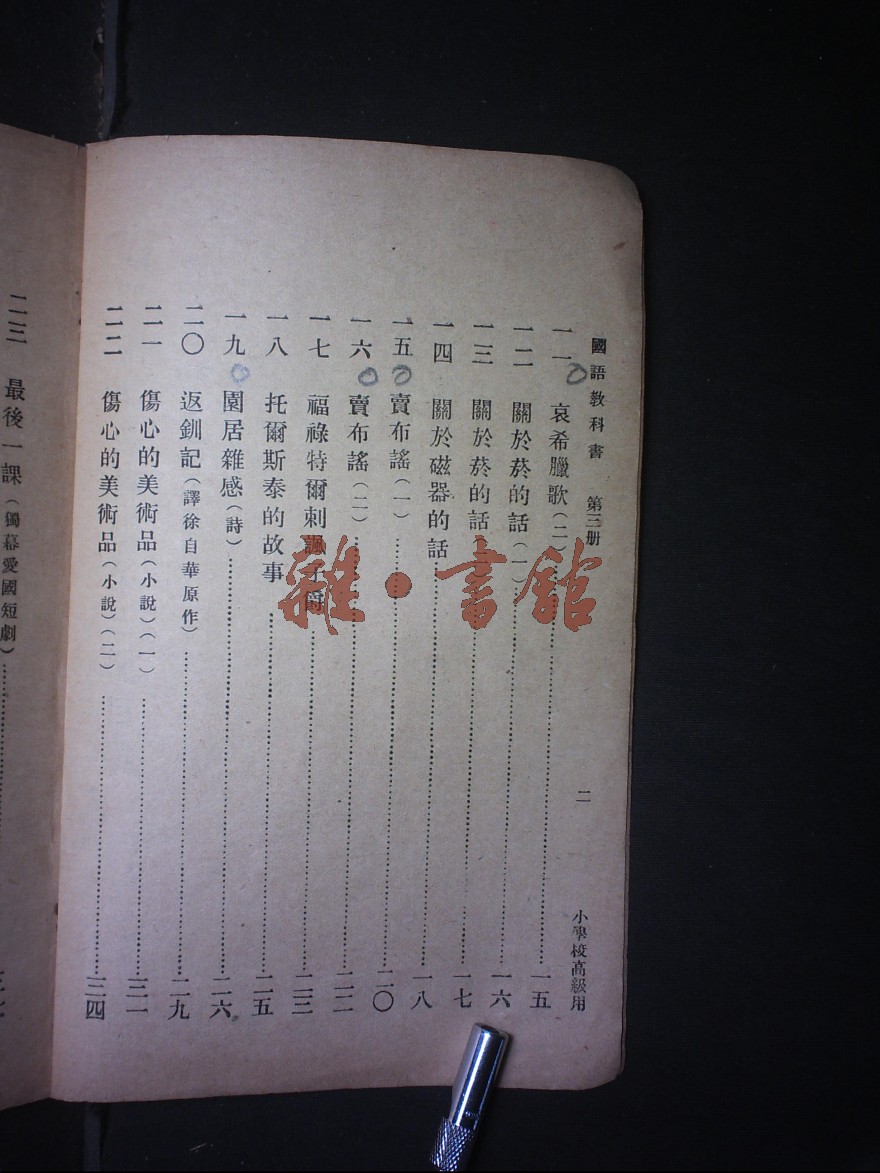 國語教科書 第三册 二 小學校高級用
一一 哀希臘歌(二) 一五
一二 關於菸的話(一) 一六
一三 關於菸的話 一七
一四 關於磁器的話 一八
一五 賣布謠(一) 二〇
一六 賣布謠(二) 二二
一七 福祿特爾刺諷子爵 二三
一八 托爾斯泰的故事 二五
一九 園居雜感(詩) 二六
二〇 返釧記(譯徐自華原作) 二九
二一 傷心的美術品(小說)(一) 三一
二二 傷心的美術品(小說)(二) 三四
二三 最後一課(獨幕愛國短劇)
雜·書館